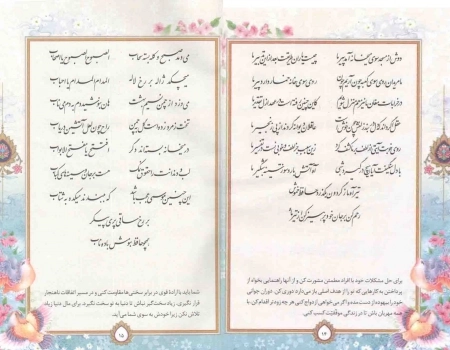 دوش از مسجد سوی میخانه آمد پیر ما چیست یاران طریقت بعد از این تدبیر ما
ما مریدان روی سوی کعبه چون آریم چون روی سوی خانه خمار دارد پیر ما
در خرابات مغان ما نیز هم منزل شویم کاین چنین رفته است در عهد ازل تقدیر ما
عقل گر داند که دل در بند زلفش چون خوش است عاقلان دیوانه گردند از پی زنجیر ما
روی خوبت آیتی از لطف بر ما کشف کرد زین سبب جز لطف و خوبی نیست در تفسیر ما
با دل سنگینت آیا هیچ درگیرد شبی آه آتشبار و سوز ناله شبگیر ما
تیر آه ما ز گردون بگذرد حافظ خموش
رحم کن بر جان خود پرهیز کن از تیر ما
برای حل مشکلات خود با افراد مطمئن مشورت کن و از آنها راهنمایی بخواه از
پرداختن به کارهایی که تو را از هدف اصلی باز می‌دارد دوری کن. دوران جوانی
خود را بیهوده از دست مده و اگر می‌خواهی ازدواج کنی هر چه زودتر اقدام کن. با
همه مهربان باش تا در زندگی موفقیت کسب کنی.
۱۴
می دمد صبح و کله بسته سحاب الصبوح الصبوح یا اصحاب
می چکد ژاله بر رخ لاله المدام المدام یا احباب
می وزد از چمن نسیم بهشت هان بنوشید دم به دم می ناب
تخت زمرد زده است گل به چمن راح چون لعل آتشین دریاب
در میخانه بسته اند دگر افتتح یا مفتح الابواب
لب و دندانت را حقوق نمک هست بر جان و سینه های کباب
این چنین موسمی عجب باشد که ببندند میکده به شتاب
بر رخ ساقی پری پیکر
همچو حافظ بنوش باده ناب
شما باید با اراده قوی در برابر سختی‌ها مقاومت کنی و در مسیر اتفاقات ناهنجار
قرار نگیری. زیاد سخت‌گیر نباش تا دنیا به تو سخت نگیرد. برای مال دنیا زیاد
تلاش نکن زیرا خودش به سوی شما می‌آید.
۱۵